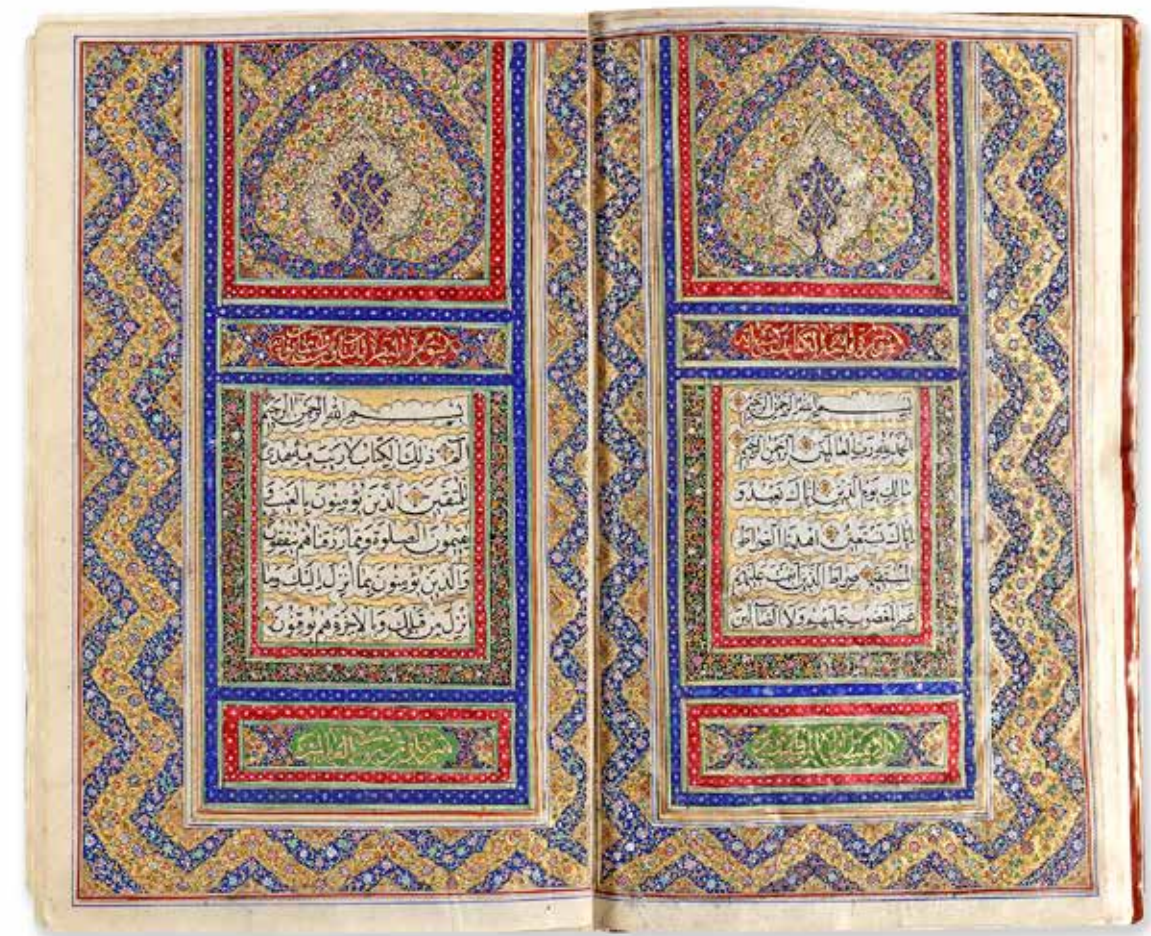 سورة فاتحة الكتاب
بِسْمِ اللهِ الرَّحْمٰنِ الرَّحِيمِ
اَلْحَمْدُ لِلّٰهِ رَبِّ الْعَالَمِينَ اَلرَّحْمٰنِ الرَّحِيمِ
مَالِكِ يَوْمِ الدِّينِ اِيَّاكَ نَعْبُدُ وَ
اِيَّاكَ نَسْتَعِينُ اِهْدِنَا الصِّرَاطَ
الْمُسْتَقِيمَ صِرَاطَ الَّذِينَ اَنْعَمْتَ عَلَيْهِمْ
غَيْرِ الْمَغْضُوبِ عَلَيْهِمْ وَلَا الضَّالِّينَ
سورة البقرة
بِسْمِ اللهِ الرَّحْمٰنِ الرَّحِيمِ
الٓمٓ ذٰلِكَ الْكِتَابُ لَا رَيْبَ فِيهِ هُدًى
لِلْمُتَّقِينَ الَّذِينَ يُؤْمِنُونَ بِالْغَيْبِ وَ
يُقِيمُونَ الصَّلٰوةَ وَمِمَّا رَزَقْنَاهُمْ يُنْفِقُونَ
وَالَّذِينَ يُؤْمِنُونَ بِمَا اُنْزِلَ اِلَيْكَ وَمَا
اُنْزِلَ مِنْ قَبْلِكَ وَبِالْاٰخِرَةِ هُمْ يُوقِنُونَ